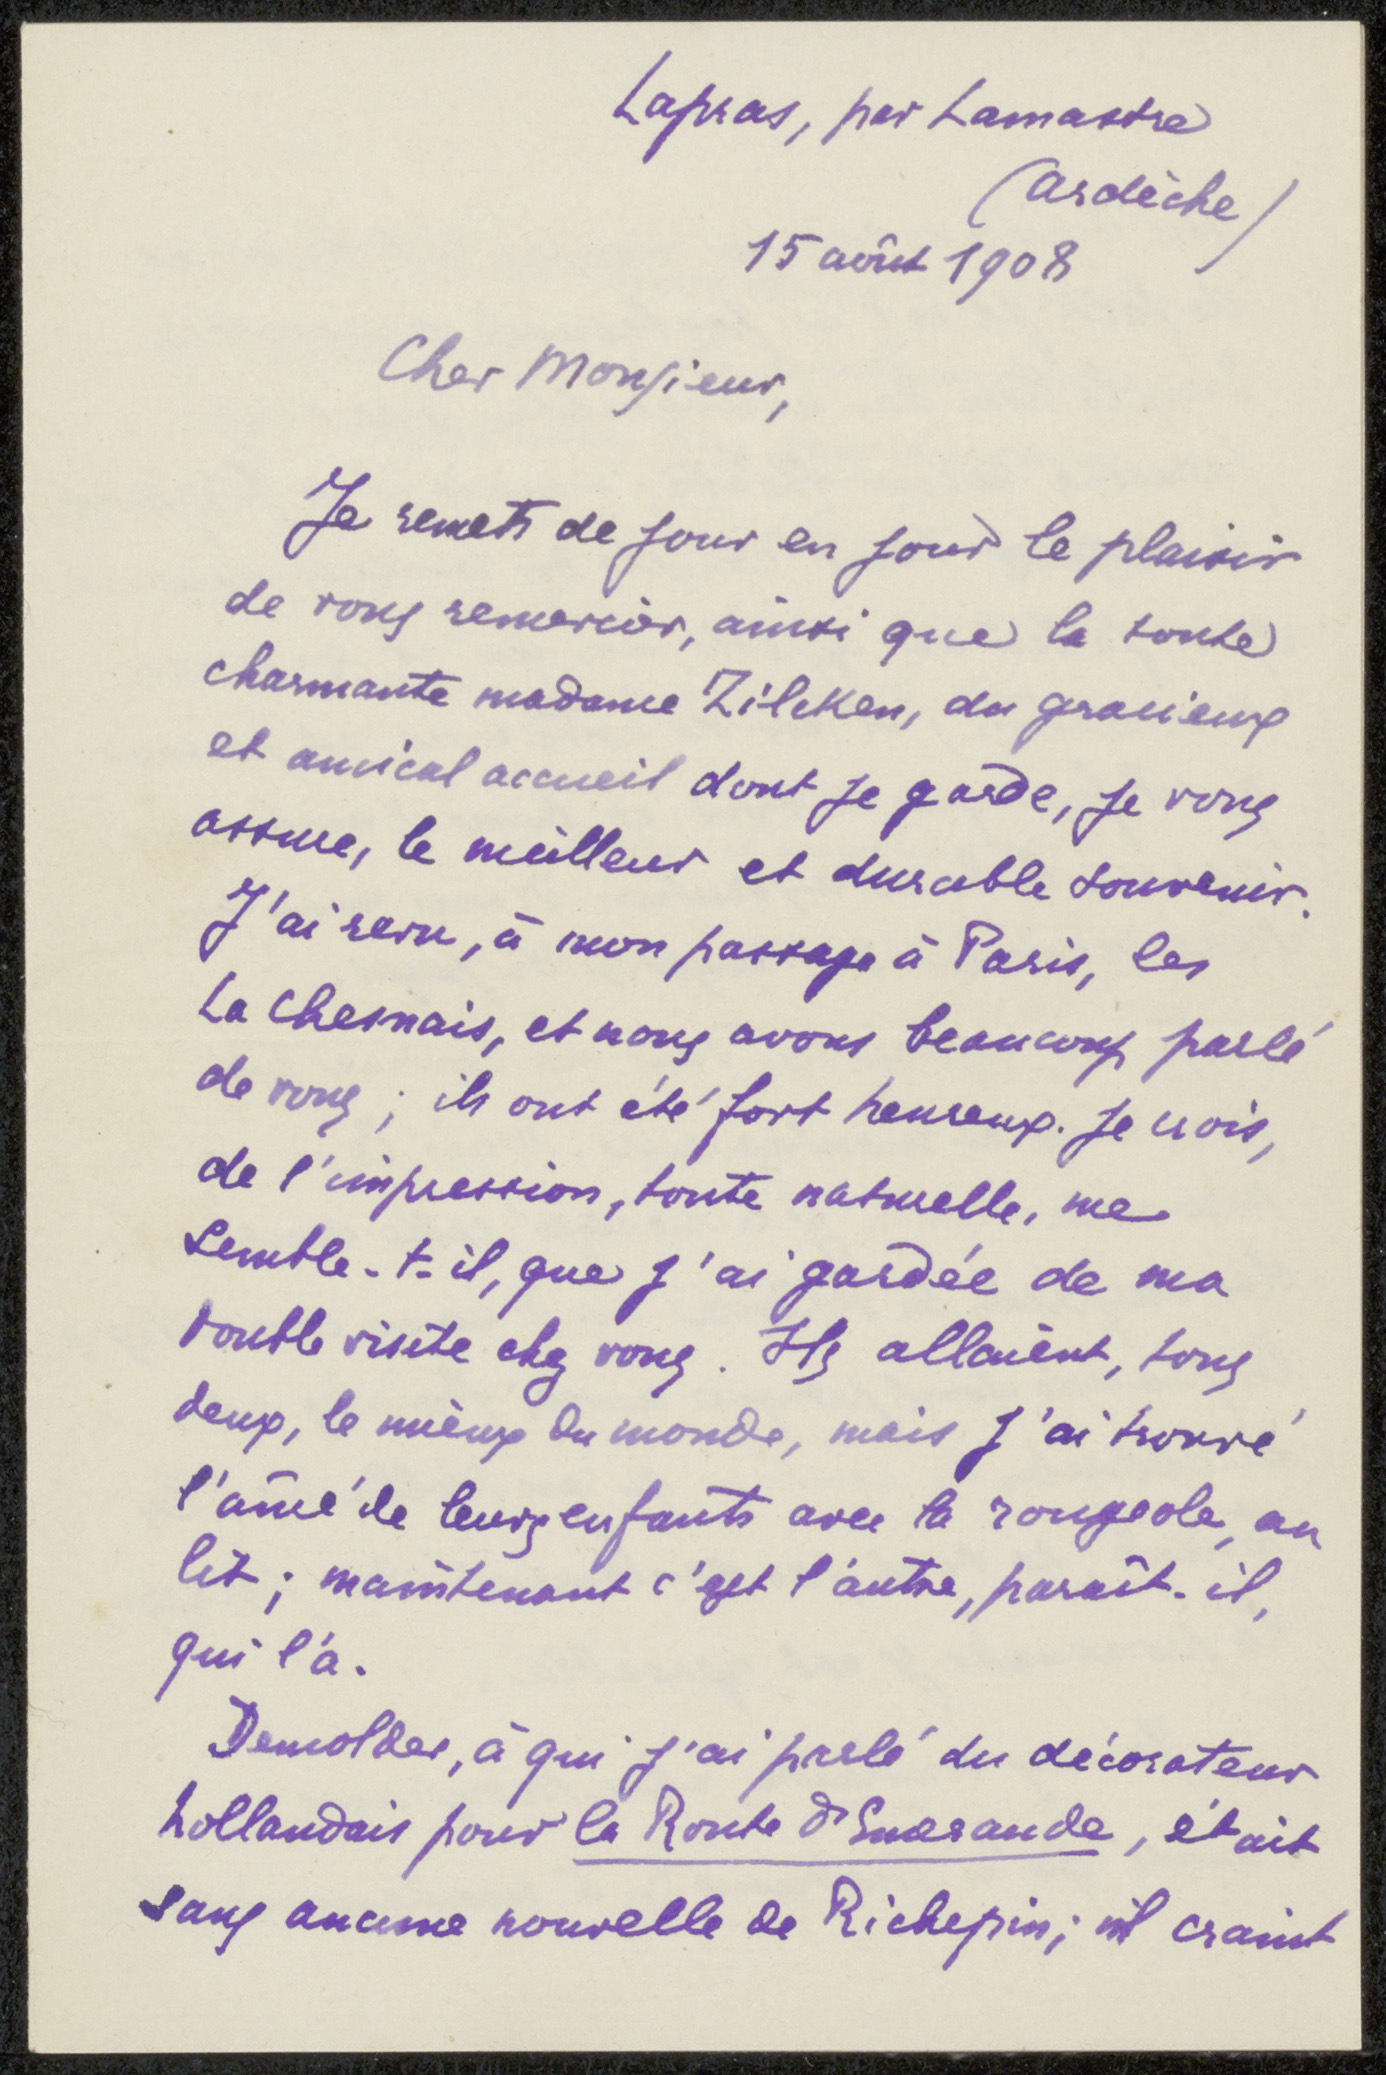 Lapras, par Lamastre
(Ardèche)
15 août 1908
Cher Monsieur,
Je remets de jour en jour le plaisir
de vous remercier, ainsi que la toute
charmante madame Zilcken, du gracieux
et amical accueil dont je garde, je vous
assure, le meilleur et durable souvenir.
J'ai revu, à mon passage à Paris, les
La Chesnais, et nous avons beaucoup parlé
de vous ; ils ont été fort heureux. Je crois,
de l'impression, toute naturelle, me
semble-t-il, que j'ai gardée de ma
double visite chez vous. Ils allaient, tous
deux, le mieux du monde, mais j'ai trouvé
l'aîné de leurs enfants avec la rougeole, au
lit ; maintenant c'est l'autre, paraît-il,
qui l'a.
Demolder, à qui j'ai parlé du décorateur
hollandais pour la Route d'Emeraude, était
sans aucune nouvelle de Richepin ; il craint